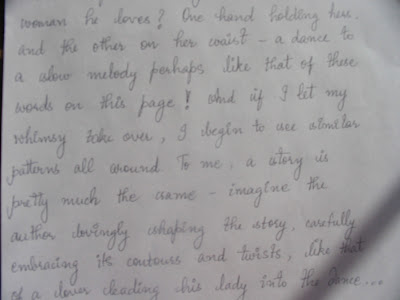 woman he loves? One hand holding hers
and the other on her waist - a dance to
a slow melody perhaps like that of these
words on this page! And if I let my
whimsy take over, I begin to see similar
patterns all around. To me, a story is
pretty much the same - imagine the
author lovingly shaping the story, carefully
embracing its contours and twists, like that
of a lover leading his lady into the dance....